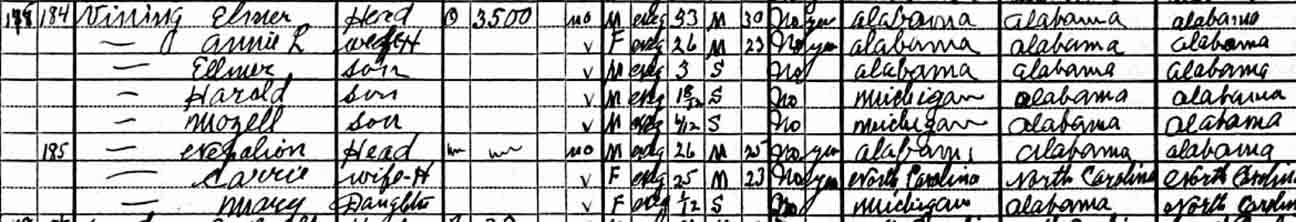 184 Vining Elmer Head O 3500 no M neg 33 M 30 No yes Alabama Alabama Alabama
— Annie L wife-H V F neg 26 M 23 No yes Alabama Alabama Alabama
— Ellmer son V M neg 3 S No Alabama Alabama Alabama
— Harold son V M neg 18/12 S No Michigan Alabama Alabama
— Mozell son V M neg 4/12 S No Michigan Alabama Alabama
185 — Head no M neg 26 M 25 No yes Alabama Alabama Alabama
— Carrie wife-H V F neg 25 M 23 No yes North Carolina North Carolina North Carolina
— Mary Daughter V F neg /12 S No Michigan Alabama North Carolina